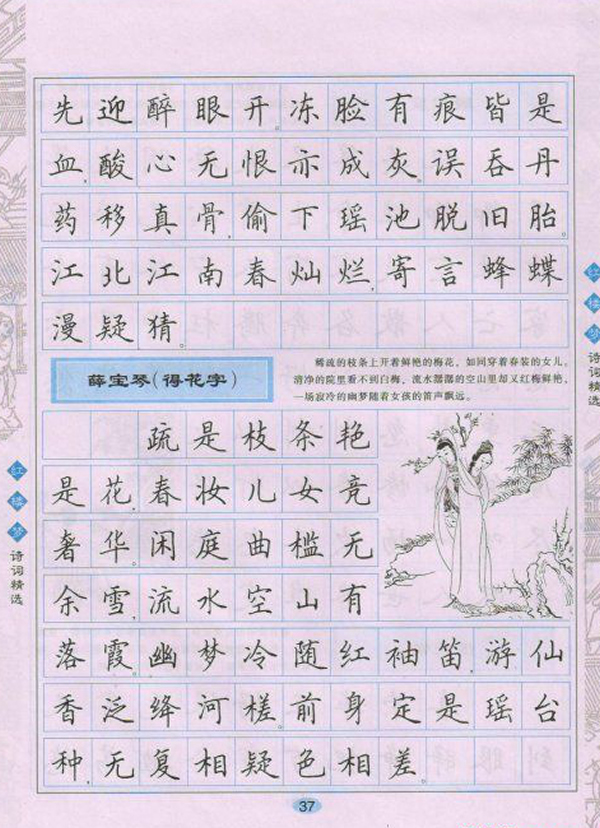 先迎醉眼开。冻脸有痕皆是
血，酸心无恨亦成灰。误吞丹
药移真骨，偷下瑶池脱旧胎。
江北江南春灿烂，寄言蜂蝶
漫疑猜。
薛宝琴（得花字）
稀疏的枝条上开着鲜艳的梅花，如同穿着春装的女儿。
清净的院里看不到白梅，流水潺潺的空山里却又红梅鲜艳，
一场寂冷的幽梦随着女孩的笛声飘远。
疏是枝条艳
是花，春妆儿女竞
奢华。闲庭曲槛无
余雪，流水空山有
落霞。幽梦冷随红袖笛，游仙
香泛绛河槎。前身定是瑶台
种，无复相疑色相差。
红楼梦诗词精选
红楼梦诗词精选
37